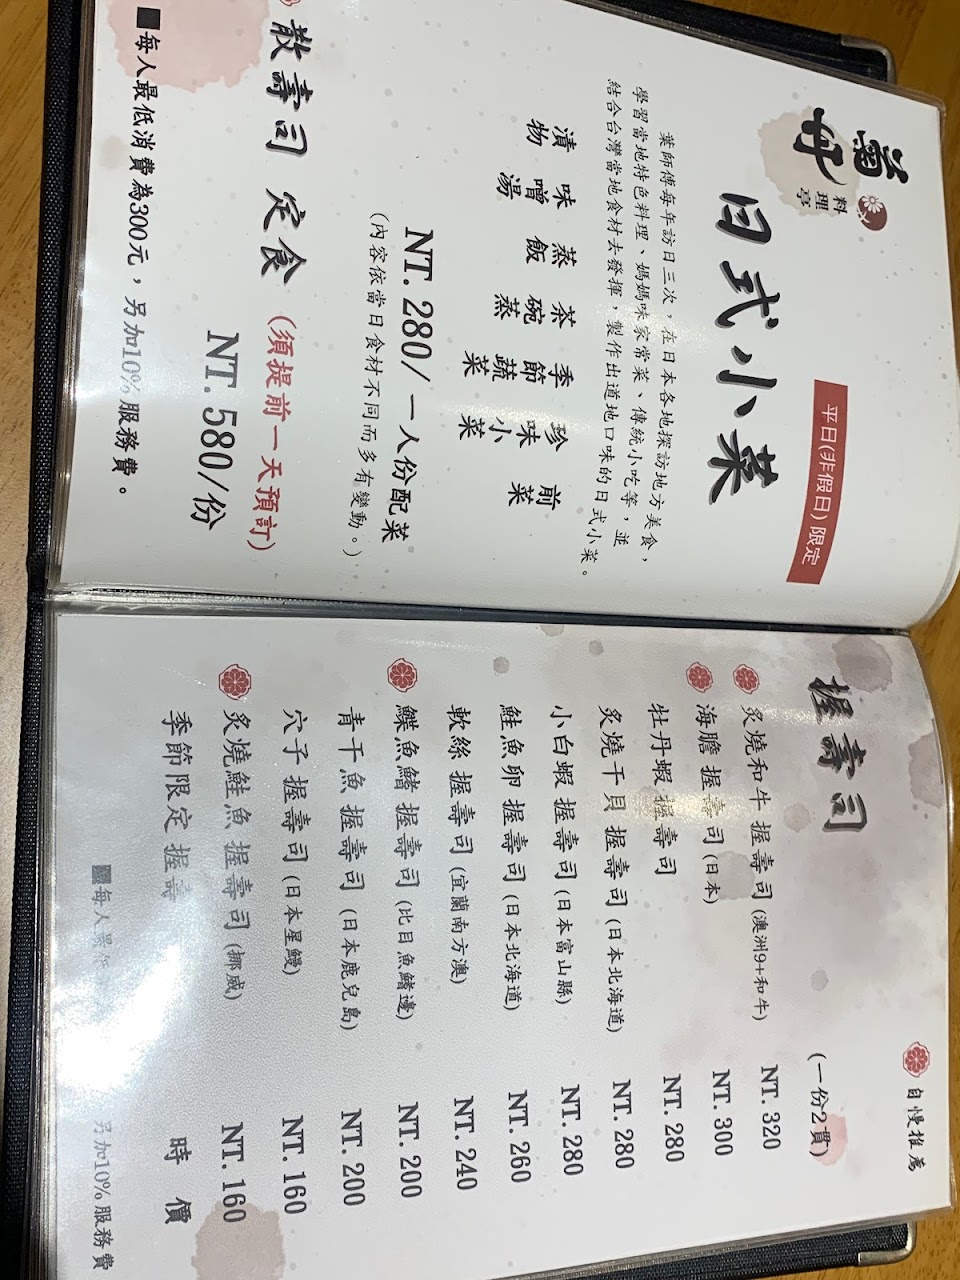 菊川
料理亭
平日(非假日)限定
日式小菜
葉師傅每年訪日三次，在日本各地探訪地方美食，
學習當地特色料理、媽媽味家常菜、傳統小吃等，並
結合台灣當地食材去發揮，製作出道地口味的日式小菜。
前菜
珍味小菜
季節蔬菜
茶碗蒸
蒸飯
味噌湯
漬物
NT. 280/一人份配菜
(內容依當日食材不同而多有變動。)
散壽司 定食 (須提前一天預訂)
NT. 580/份
■每人最低消費為300元，另加10%服務費。
自慢推薦
握壽司 (一份2貫)
炙燒和牛 握壽司 (澳洲9+和牛) NT. 320
海膽 握壽司 (日本) NT. 300
牡丹蝦 握壽司 NT. 280
炙燒干貝 握壽司 (日本北海道) NT. 280
小白蝦 握壽司 (日本富山縣) NT. 280
鮭魚卵 握壽司 (日本北海道) NT. 260
軟絲 握壽司 (宜蘭南方澳) NT. 240
鰈魚鰭 握壽司 (比目魚鰭邊) NT. 200
青干魚 握壽司 (日本鹿兒島) NT. 200
穴子 握壽司 (日本星鰻) NT. 160
炙燒鮭魚 握壽司 (挪威) NT. 160
季節限定 握壽 時價
■每人 另加10%服務費